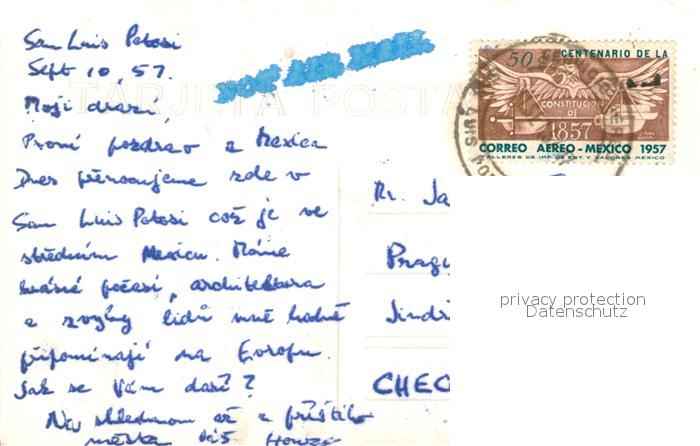 San Luis Potosi
Sept 10, 57.
TARJETA POSTAL
Moji drazí
První pozdrav z Mexica
Dnes přenocujeme zde v
San Luis Potosi což je ve
středním Mexicu. Máme
krásné počasí, architektura
a zvyky lidí mně hodně
připomínají na Evropu.
Jak se Vám daří?
Na shledanou až z příštího
města Váš
50
CENTENARIO DE LA
CONSTITUCION
DE
1857
CORREO AEREO-MEXICO 1957
TALLERES DE IMP. DE EST. Y VALORES. MEXICO
Mr. Ja
Pragu
Jindř
CHEC
privacy protection
Datenschutz